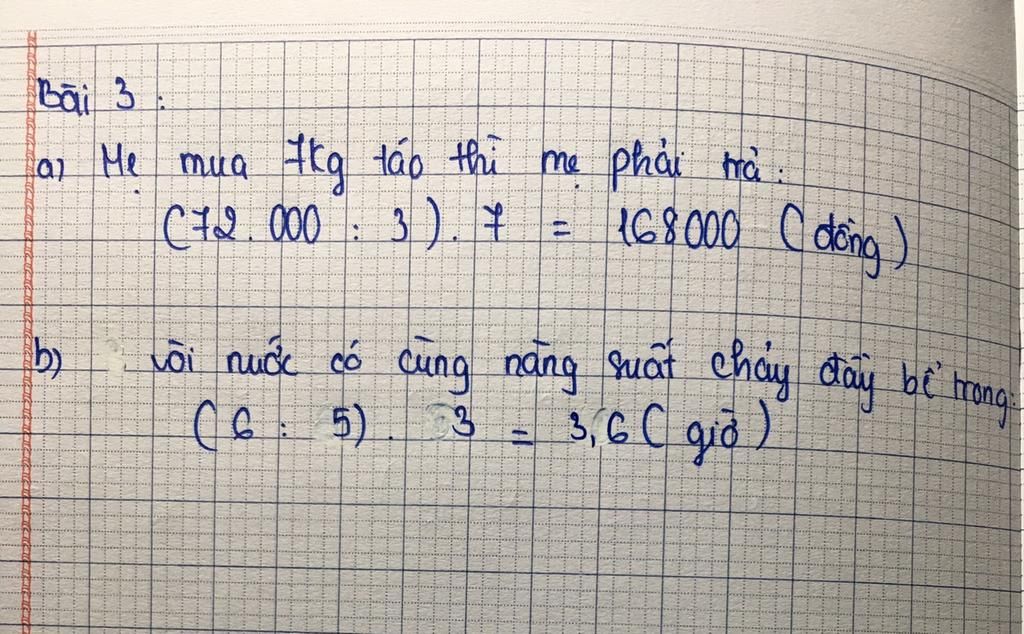 Bài 3 :
a) Mẹ mua 7kg táo thì mẹ phải trả :
(72.000 : 3) . 7 = 168000 (đồng)
b) vòi nước có cùng năng suất chảy đầy bể trong:
(6 : 5) . 3 = 3,6 (giờ)